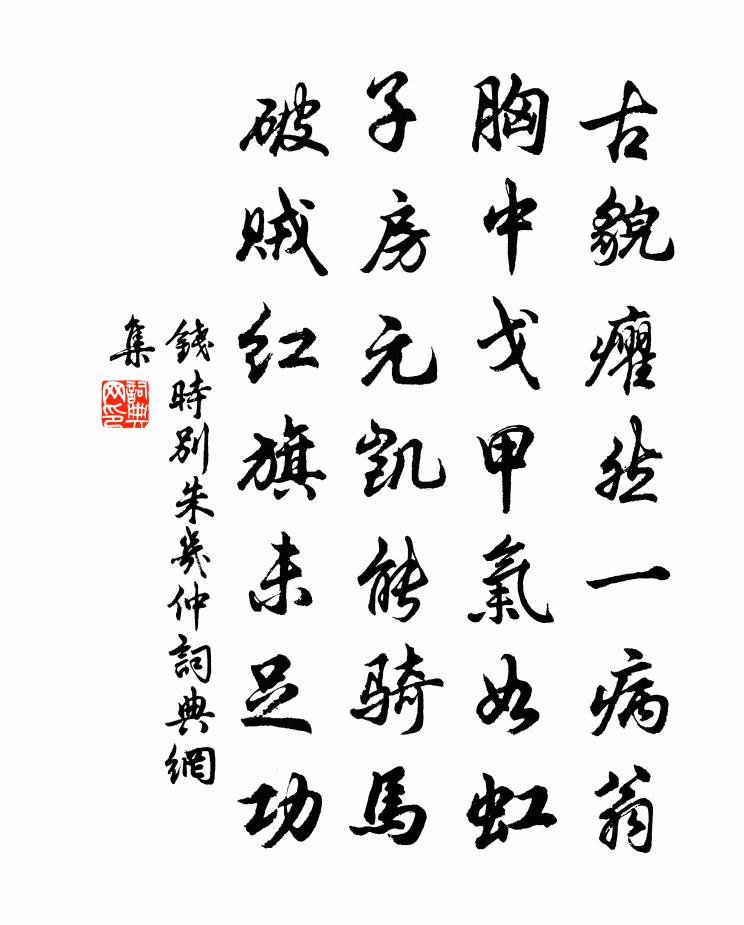 古貌癯然一病翁
胸中戈甲氣如虹
子房元凱能騎馬
破賊紅旗未足功
錢時別朱幾仲詞典網
集
詞典
网印